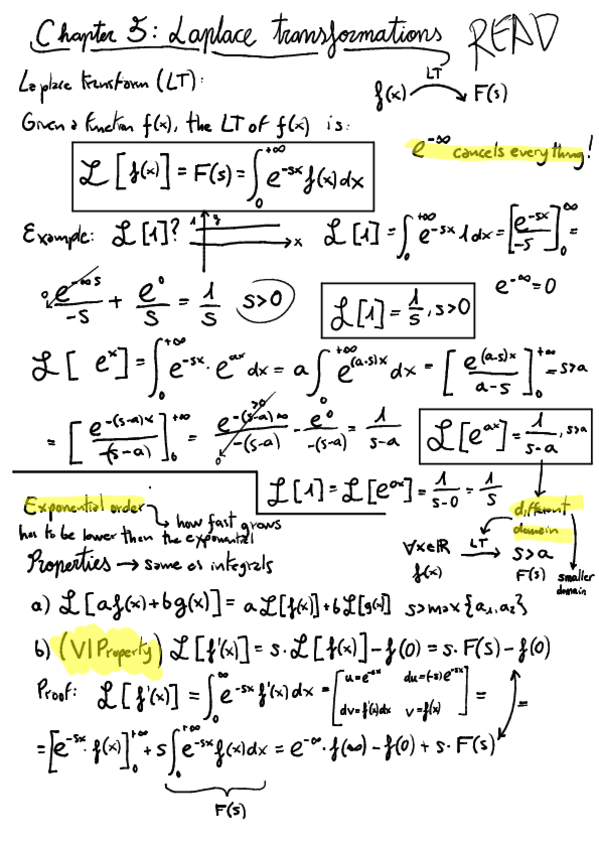 Chapter 5: Laplace transformations READ
Laplace transform (LT):
f(x) LT → F(s)
Given a function f(x), the LT of f(x) is:
e^-∞ cancels everything!
ℒ[f(x)] = F(s) = ∫₀^+∞ e^-sx f(x) dx
Example: ℒ[1]? 1 y x ℒ[1] = ∫₀^+∞ e^-sx 1 dx = [e^-sx / -s]₀^∞ =
0 e^-∞s / -s + e^0 / s = 1/s s>0 ℒ[1] = 1/s, s>0 e^-∞ = 0
ℒ[ e^x] = ∫₀^+∞ e^-sx · e^ax dx = a ∫₀^+∞ e^(a-s)x dx = [e^(a-s)x / a-s]₀^+∞ = s>a
= [e^-(s-a)x / -(s-a)]₀^+∞ = e^-(s-a)∞ / -(s-a) >0 0 - e^0 / -(s-a) = 1 / s-a ℒ[e^ax] = 1 / s-a, s>a
ℒ[1] = ℒ[e^ox] = 1 / s-0 = 1/s
different
domain
Exponential order → how fast grows
has to be lower then the exponential
∀x∈ℝ LT → s>a
f(x) F(s) smaller
domain
Properties → same as integrals
a) ℒ[af(x)+bg(x)] = aℒ[f(x)]+bℒ[g(x)] s>max{a₁,a₂}
b) (VI Property) ℒ[f'(x)] = s·ℒ[f(x)]-f(0) = s·F(s)-f(0)
Proof: ℒ[f'(x)] = ∫₀^∞ e^-sx f'(x) dx = [u=e^-sx du=(-s)e^-sx
dv=f'(x)dx v=f(x)] = =
= [e^-sx · f(x)]₀^+∞ + s ∫₀^+∞ e^-sx f(x) dx = e^-∞ · f(∞) - f(0) + s · F(s)
F(s)